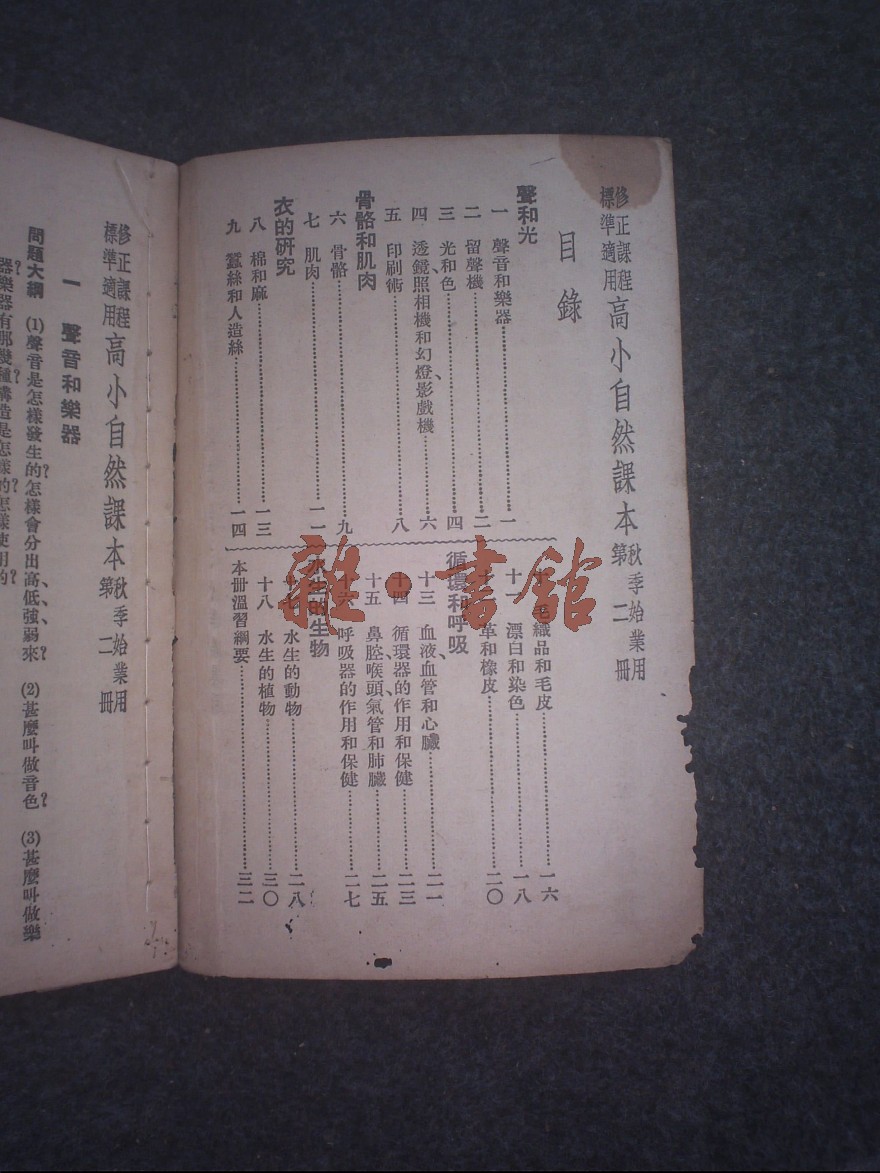 修正課程標準適用 高小自然課本 秋季始業用 第二冊
目錄
聲和光
一 聲音和樂器……一
二 留聲機……二
三 光和色……四
四 透鏡、照相機和幻燈、影戲機……六
五 印刷術……八
骨骼和肌肉
六 骨骼……九
七 肌肉……一一
衣的研究
八 棉和麻……一三
九 蠶絲和人造絲……一四
十 毛織品和毛皮……一六
十一 漂白和染色……一八
十二 革和橡皮……二〇
循環和呼吸
十三 血液、血管和心臟……二一
十四 循環器的作用和保健……二三
十五 鼻腔、喉頭、氣管和肺臟……二五
十六 呼吸器的作用和保健……二七
水生的生物
十七 水生的動物……二八
十八 水生的植物……三〇
本冊溫習綱要……三二
修正課程標準適用 高小自然課本 秋季始業用 第二冊
一 聲音和樂器
問題大綱 (1)聲音是怎樣發生的?怎樣會分出高、低、強、弱來? (2)甚麼叫做音色? (3)甚麼叫做樂
器?樂器有那幾種?構造是怎樣的?怎樣使用的?
雜·書館